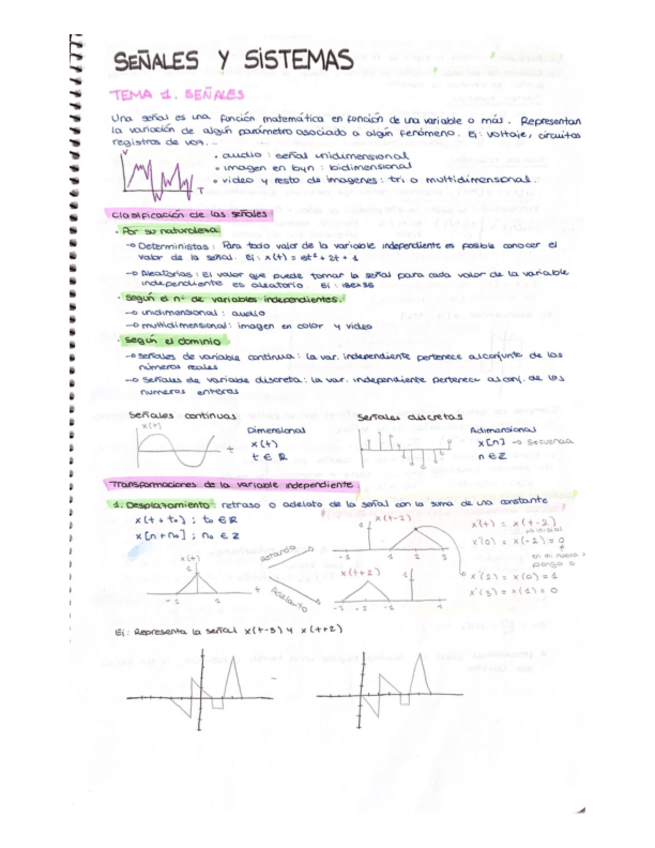 SEÑALES Y SISTEMAS
TEMA 1. SEÑALES
Una señal es una función matemática en función de una variable o más. Representan
la variación de algún parámetro asociado a algún fenómeno. Ej: voltaje, circuitos
registros de voz...
V
T
• audio: señal unidimensional
• imagen en byn: bidimensional
• video y resto de imagenes: tri o multidimensional.
Clasificación de las señales
• Por su naturaleza
→ Deterministas: Para todo valor de la variable independiente es posible conocer el
valor de la señal. Ej: x(t) = 15t² + 2t + 1
→ Aleatorias: El valor que puede tomar la señal para cada valor de la variable
independiente es aleatorio. Ej:
• Según el nº de variables independientes.
→ unidimensional: audio
→ multidimensional: imagen en color y video
• Según el dominio
→ señales de variable continua: la var. independiente pertenece al conjunto de los
números reales
→ Señales de variable discreta: la var. independiente pertenece al conj. de los
numeros enteros
Señales continuas
x(t)
t
Dimensional
x(t)
t ∈ ℝ
Señales discretas
Adimensional
x[n] → Secuencia
n ∈ Z
Transformaciones de la variable independiente
1. Desplazamiento: retraso o adelato de la señal con la suma de una constante
x(t + t₀) ; t₀ ∈ ℝ
x[n + n₀] ; n₀ ∈ Z
x(t)
1
-1 1 t
Retardo
Adelanto
x(t-2)
1
1 2 3
x(t+2)
1
-3 -2 -1 1
x'(t) = x(t-2)
x'(0) = x(-2) = 0
x'(2) = x(0) = 1
x'(3) = x(1) = 0
Ej: Representa la señal x(t-3) y x(t+2)